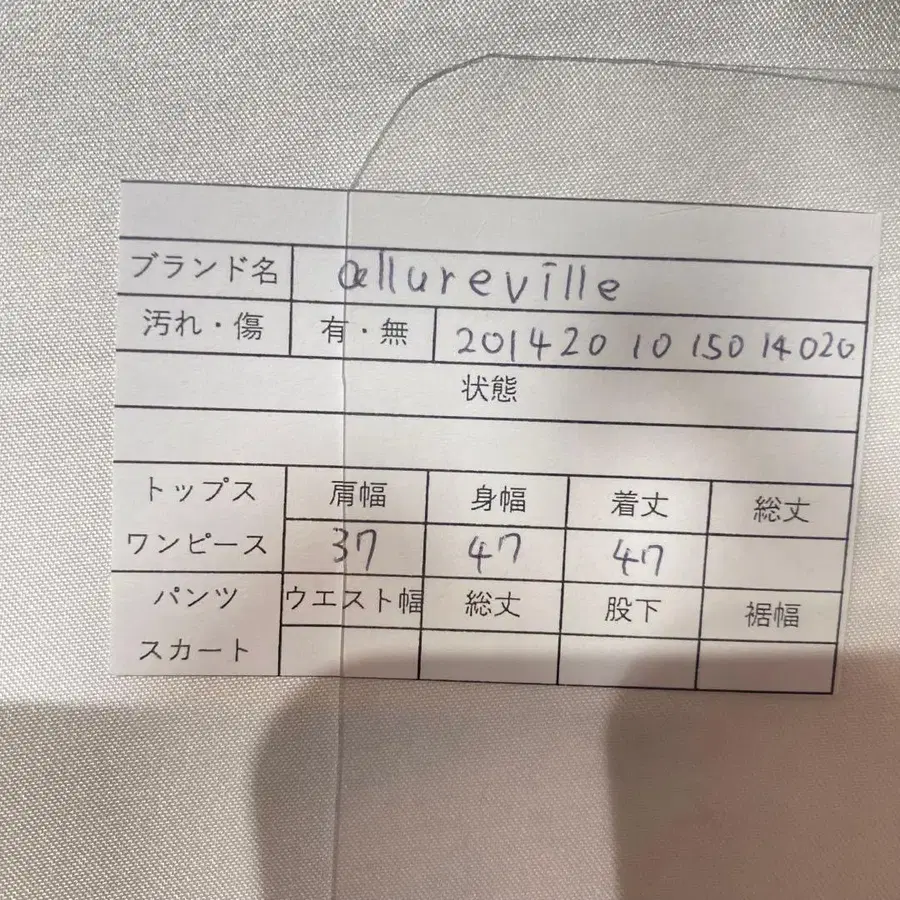 ブランド名 allureville
汚れ・傷 有・無 201420 10 150 14020
状態
トップス 肩幅 身幅 着丈 総丈
ワンピース 37 47 47
パンツ ウエスト幅 総丈 股下 裾幅
スカート